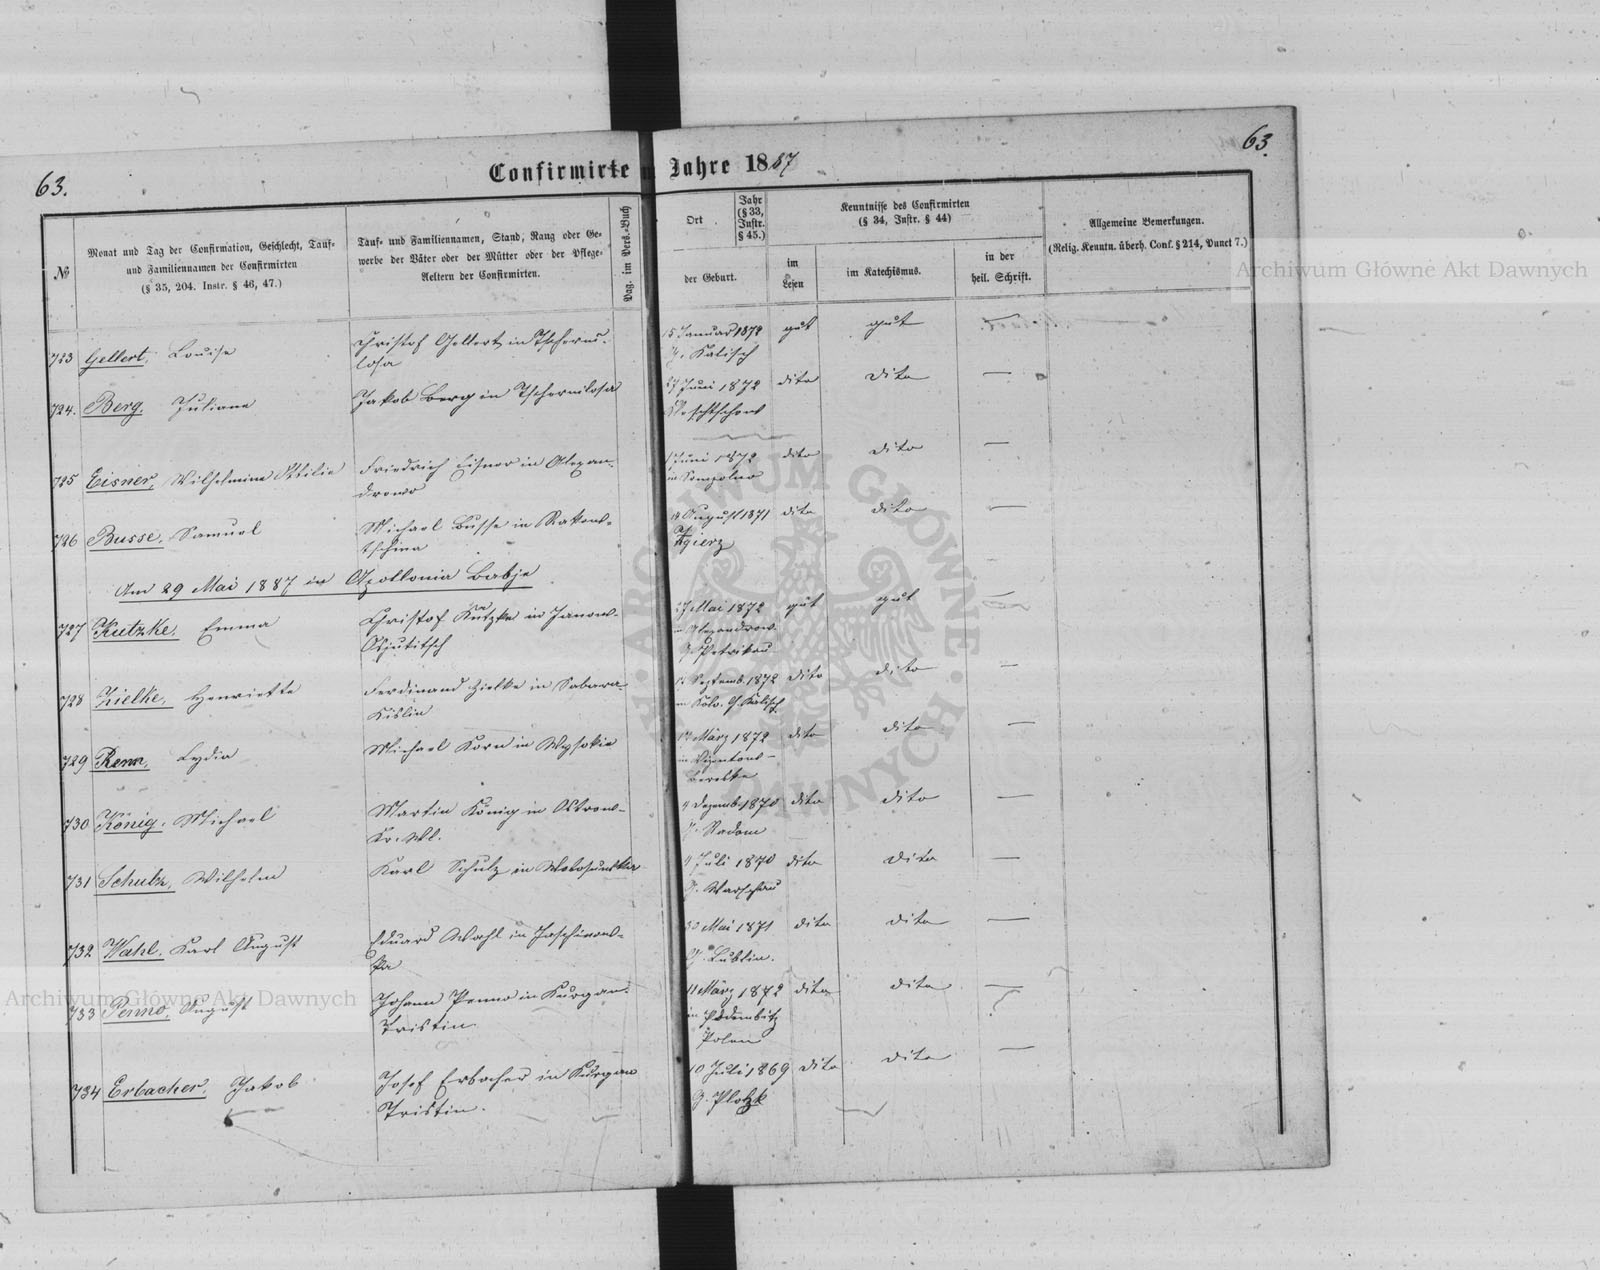 63.
63.
Confirmirte
Jahre 1887
№
Monat und Tag der Confirmation, Geschlecht, Tauf-
und Familiennamen der Confirmirten
(§ 35, 204. Instr. § 46, 47.)
Tauf- und Familiennamen, Stand, Rang oder Ge-
werbe der Väter oder der Mütter oder der Pflege-
Aeltern der Confirmirten.
Pag. im Pers.-Buch
Ort
Jahr
(§ 33,
Instr.
§ 45.)
der Geburt.
Kenntnisse des Confirmirten
(§ 34, Instr. § 44)
im
Lesen
im Katechismus.
in der
heil. Schrift.
Allgemeine Bemerkungen.
(Relig. Kenntn. überh. Conf. § 214, Punct 7.)
Archiwum Główne Akt Dawnych
723 Gellert, Louise
Christof Gellert in Tscherni-
losa
15 Januar 1872
G. Kalisch
gut gut
724. Berg. Juliane
Jakob Berg in Tschernilosa
27 Juni 1872
dito dito —
725 Eisner, Wilhelmine Ottilie
Friedrich Eisner in Alexan-
drowo
Juni 1872
in Sompolno
dito dito —
726 Busse, Samuel
Michael Busse in Rakow-
tschina
14 August 1871
Zgierz
dito dito —
Am 29 Mai 1887 in Apollonia Babje
727 Kutzke, Emma
Christof Kutzke in Janow-
27 Mai 1872
Alexandrow
G. Petrikau
gut gut —
728 Zielke, Henriette
Ferdinand Zielke in Sabara-
Kislin
Septemb. 1872
in Kolo. G. Kalisch
dito dito —
729 Lydia
Michael Korn in Wysokie
März 1872
dito dito —
730 König, Michael
Martin König in Ostrow-
Kr. Wl.
Dezemb. 1870
G. Radom
dito dito —
731 Schulz, Wilhelm
Karl Schulz in
Juli 1870
G. Warschau
dito dito —
732 Wahl, Karl August
Eduard Wahl in Jaschinow-
ka
30 Mai 1871
G. Lublin.
dito dito —
733 Penno, August
Johann Penno in Kurgan-
Tristin
11 März 1872
in Poddembitz
Polen
dito dito —
734 Erbacher, Jakob
Josef Erbacher in Kurgan
Tristin.
10 Juli 1869
G. Plotzk
dito dito —
Archiwum Główne Akt Dawnych
ARCHIWUM GŁÓWNE AKT DAWNYCH